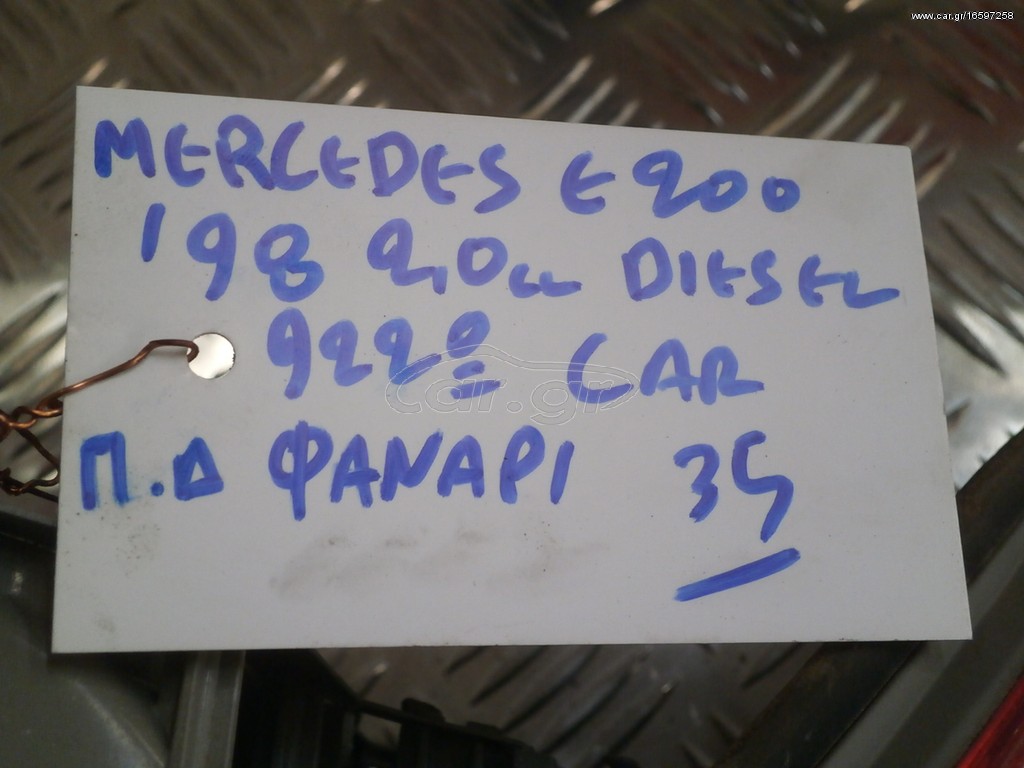 www.car.gr/16597258
MERCEDES E200
'98 2,0cc DIESEL
922º CAR
car.gr
Π.Δ ΦΑΝΑΡΙ 35